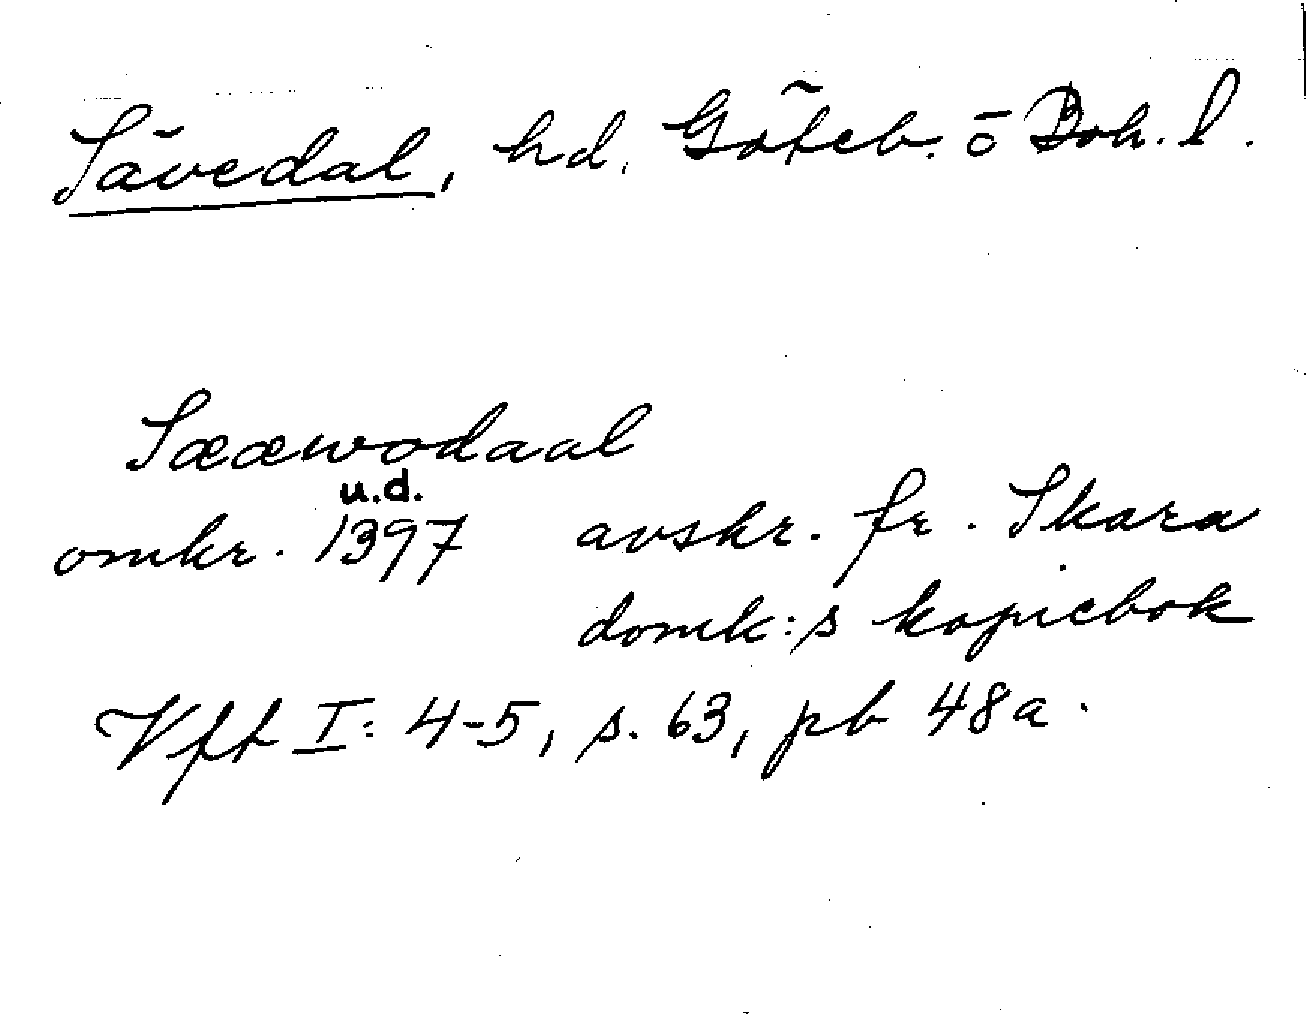 Sävedal, hd. Göteb. o Boh. l.
Sææwodaal
u.d.
omkr. 1397 avskr. fr. Skara
domk:s kopiebok
Vfft I: 4-5, s. 63, pb 48a.